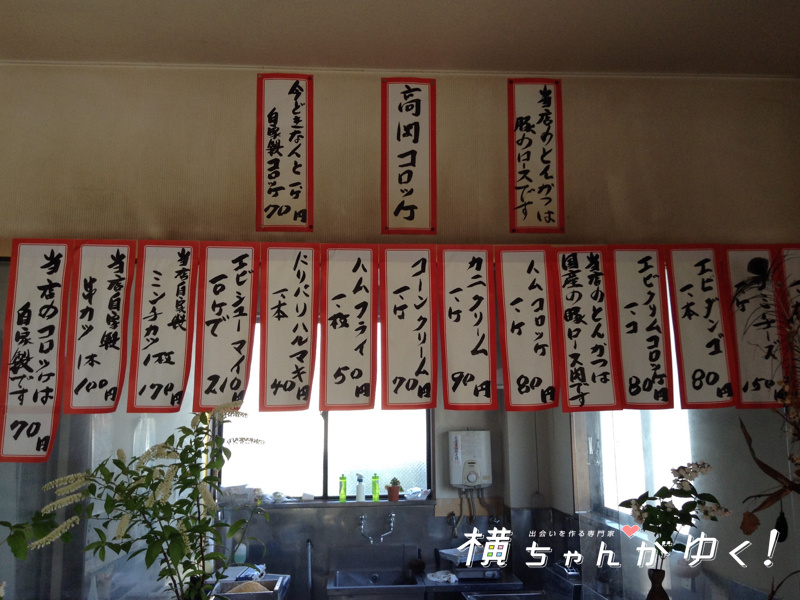 当店のとんかつは
豚のロースです
高岡コロッケ
今どきなんと一ケ
自家製コロッケ70円
ミンチーズ
一ケ
150円
エビダンゴ
一本
80円
エビクリームコロッケ
一コ
80円
当店のとんかつは
国産の豚ロース肉です
ハムコロッケ
一ケ
80円
カニクリーム
一ケ
90円
コーンクリーム
一ケ
70円
ハムフライ
一枚
50円
パリパリハルマキ
一本
40円
エビシューマイ
10ケで
210円
当店自家製
ミンチカツ
1枚
170円
当店自家製
串カツ
1本
100円
当店のコロッケは
自家製です
70円
出会いを作る専門家
横ちゃんがゆく！